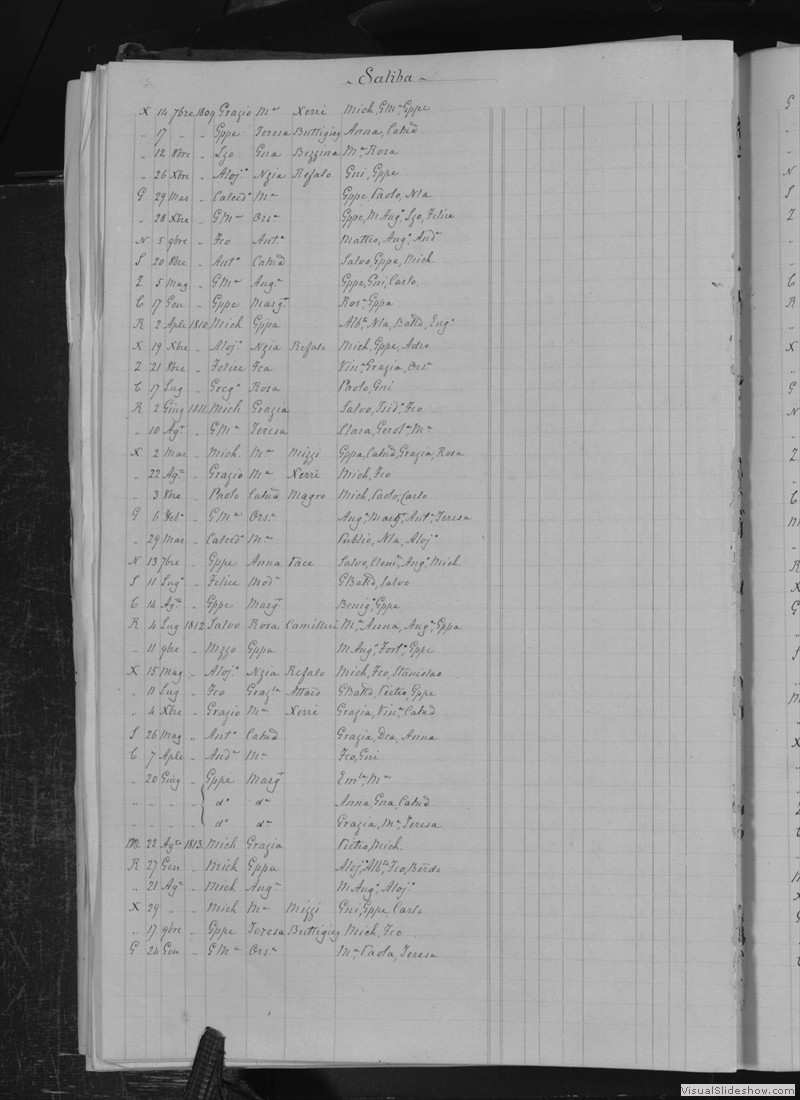 ~ Saliba ~
X 14 7bre 1809 Grazio Mª Xerri Mich, GMª, Gppe
" 17 " " Gppe Teresa Buttigieg Anna, Catnd
" 12 8bre " Lzo Gna Bezzina Mª Rosa
" 26 Xbre " Aloj° Nzia Refalo Gni, Gppe
G 29 Mar " Calced° Mª Gppe, Paolo, Nla
" 28 Xbre " GMª Orsª Gppe, M Ang°, Lzo, Felice
N 5 9bre " Fco Antª Matteo, Ang°, Andª
S 20 8bre " Ant° Catnd Salvo, Gppe, Mich
Z 5 Mag " GMª Angª Gppe, Gni, Carlo
C 17 Gen " Gppe Margª Rosª, Gppa
R 2 Aple 1810 Mich Gppa Nla, Battd, Eug°
X 19 Xbre " Aloj° Nzia Refalo Mich, Gppe
Z 21 8bre " Felice Fca Vinª, Grazia, Orsª
C 17 Lug " Greg° Rosa Paolo, Gni
R 2 Giug 1811 Mich Grazia Salvo, Isid°, Fco
" 10 Ag° " GMª Teresa Clara, Mª
X 2 Mar " Mich Mª Mizzi Gppa, Catnd, Grazia, Rosa
" 22 Ag° " Grazio Mª Xerri Mich, Fco
" 3 8bre " Paolo Catnd Magro Mich, Paolo, Carlo
G 6 Feb° " GMª Orsª Angª, Margª, Antª, Teresa
" 29 Mar " Calced° Mª Publio, Nla, Aloj°
N 13 7bre " Gppe Anna Pace Salvo, Clemte, Ang°, Mich
S 11 Lug° " Felice Modª GBattd, Salvo
C 14 Ag° " Gppe Margª Benig°, Gppe
R 4 Lug 1812 Salvo Rosa Camilleri Mª, Anna, Angª, Gppa
" 11 9bre " Nzzo Gppa M Ang°, Fort°, Gppe
X 15 Mag " Aloj° Nzia Refalo Mich, Fco, Stanislao
" 11 Lug " Fco Attard GBattd, Pietro, Gppe
" 4 Xbre " Grazio Mª Xerri Grazia, Vinª, Catnd
S 26 Mag " Ant° Catnd Grazia, Dca, Anna
C 7 Aple " Andª Mª Fco, Gni
" 20 Giug " Gppe Margª Mª
" " " " { d° dª Anna, Gna, Catnd
" " " " d° dª Grazia, Mª, Teresa
M 22 Ag° 1813 Mich Grazia Pietro, Mich
R 27 Gen " Mich Gppa Aloj°, Fco, Berdo
" 21 Ag° " Mich Angª M Ang°, Aloj°
X 29 " " Mich Mª Mizzi Gni, Gppe, Carlo
" 17 9bre " Gppe Teresa Buttigieg Mich, Fco
G 24 Gen " GMª Orsª Mª, Paola, Teresa
VisualSlideshow.com